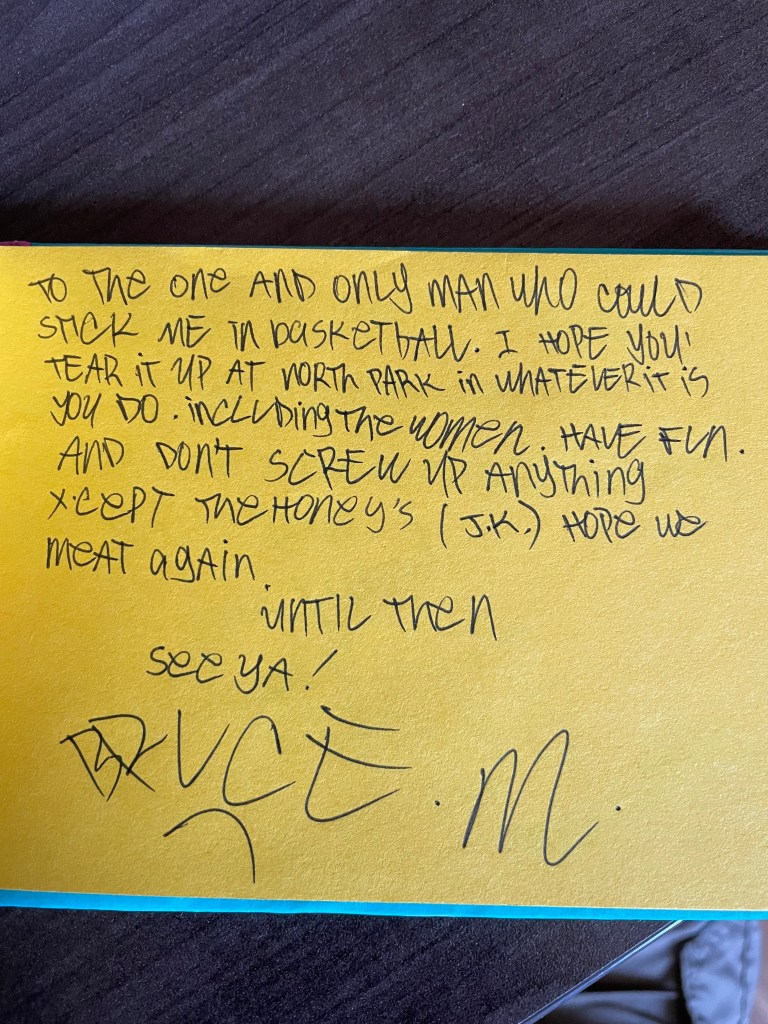 TO THE ONE AND ONLY MAN WHO COULD
STICK ME IN BASKETBALL. I HOPE YOU
TEAR IT UP AT NORTH PARK IN WHATEVER IT IS
YOU DO. INCLUDING THE WOMEN. HAVE FUN.
AND DON'T SCREW UP ANYTHING
X-CEPT THE HONEY'S (J.K.) HOPE WE
MEAT AGAIN.
UNTIL THEN
SEE YA!
BRUCE. M.